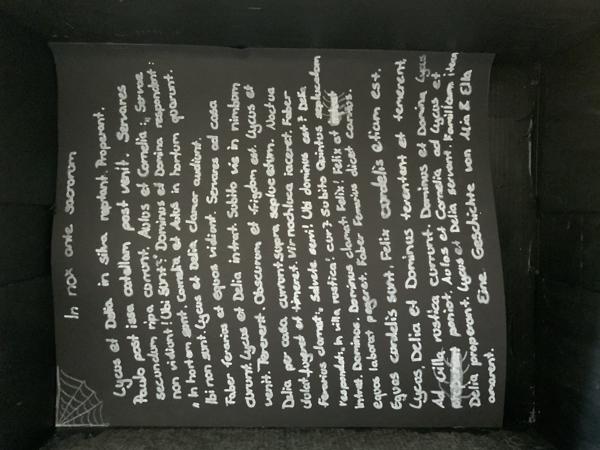 In nox ante sacrorum
Lycus et Delia in silva reptant. Properant.
Paulo post issa catellam post venit. Senares
secundum ripa currunt. Aulos et Cornelia :,, Servae
non vidiunt! Ubi sunt?" Dominus et Domina respondent:
,, In hortum sunt. Cornelia et Aulos in hortum quarunt.
Ibi non sunt. Lycus et Delia clamor audiunt.
Faber ferarius et equos vidiunt. Senares ad casa
currunt. Lycus et Delia intrat. Subito vis in nimbam
venit. Tenerent. Obscurum et frigdom est. Lycus et
Delia per casa currunt. supra sepluc etum. Noctua
ululat. lugnad et timeret. Vir nachluca iaceret. Faber
Ferarius clamat: Salvete veni! Ubi dominus est? Delia
respondat: In villa rustica! cur? Subito Quintus
intrat. Dominus clamat: Felix! Felix et
equos laborat pageret. Faber Ferarius dicet
Equos cardelis sunt. Felix cardelis etiam est.
Lycus, Delia et Dominus tenentent et tenerent,
Ad villa rustica currunt. Dominus et Domina Lycus
peniat. Aulos et Cornelia ad Lycus et
Delia properant. Lycus et Delia servant. Familiam
amarent. Ene. Geschichte von Mia & Ella